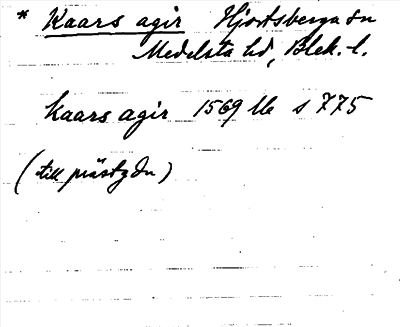 * Kaars agir Hjortsberga sn
Medelsta hd, Blek. l.
kaars agir 1569 Üb s 775
(till prästgdn)